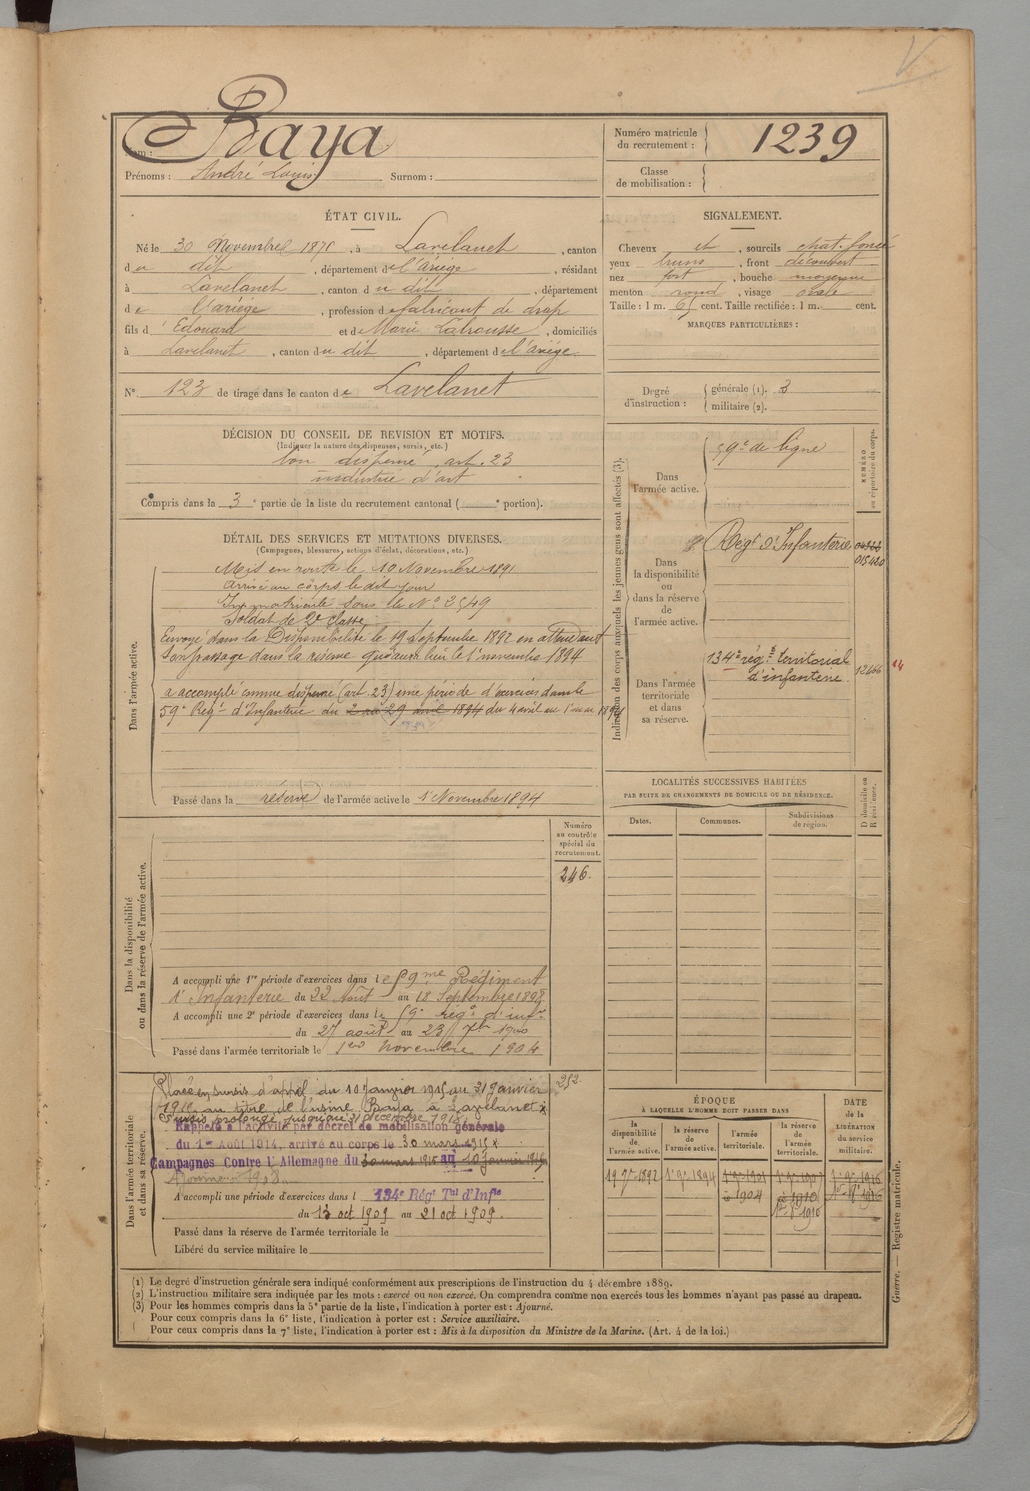 Nom : Baya
Prénoms : André Louis Surnom :
Numéro matricule du recrutement : 1239
Classe de mobilisation :
ÉTAT CIVIL.
Né le 30 Novembre 1870, à Lavelanet, canton
du dit, département de l'Ariège, résidant
à Lavelanet, canton du dit, département
de l'Ariège, profession de fabricant de drap
fils d'Edouard et de Marie Latrousse, domiciliés
à Lavelanet, canton du dit, département de l'Ariège.
N° 123 de tirage dans le canton de Lavelanet
SIGNALEMENT.
Cheveux et, sourcils chat. foncé
yeux bruns, front découvert
nez fort, bouche moyenne
menton rond, visage ovale
Taille : 1 m. 61 cent. Taille rectifiée : 1 m. cent.
MARQUES PARTICULIÈRES :
Degré d'instruction : générale (1). 3
militaire (2).
DÉCISION DU CONSEIL DE REVISION ET MOTIFS.
(Indiquer la nature des dispenses, sursis, etc.)
bon dispensé art. 23
industrie d'art
Compris dans la 3e partie de la liste du recrutement cantonal ( e portion).
DÉTAIL DES SERVICES ET MUTATIONS DIVERSES.
(Campagnes, blessures, actions d'éclat, décorations, etc.)
Dans l'armée active.
Mis en route le 10 Novembre 1891
Arrivé au corps le dit jour
Immatriculé sous le N° 2549
Soldat de 2e classe
Envoyé dans la Disponibilité le 19 Septembre 1892 en attendant
son passage dans la réserve qui aura lieu le 1er novembre 1894
a accompli comme dispensé (art. 23) une période d'exercices dans le
59e Régt d'Infanterie du 2 au 29 avril 1894 du 4 avril au 1er mai 1894
Passé dans la réserve de l'armée active le 1er Novembre 1894
Indication des corps auxquels les jeunes gens sont affectés (3).
NUMÉRO au répertoire du corps.
Dans l'armée active.
59e de ligne
Dans la disponibilité ou dans la réserve de l'armée active.
Régt d'Infanterie
015420
Dans l'armée territoriale et dans sa réserve.
134e régt territorial
d'infanterie.
12666
14
LOCALITÉS SUCCESSIVES HABITÉES
PAR SUITE DE CHANGEMENTS DE DOMICILE OU DE RÉSIDENCE.
Dates. Communes. Subdivisions de région. D domicile ou R résidence.
Dans la disponibilité ou dans la réserve de l'armée active.
Numéro au contrôle spécial du recrutement.
246.
A accompli une 1re période d'exercices dans le 59me Régiment
d'Infanterie du 22 Août au 18 Septembre 1898
A accompli une 2e période d'exercices dans le 59e régt d'infie
du 27 août au 23 7bre 1900
Passé dans l'armée territoriale le 1er novembre 1904
Dans l'armée territoriale et dans sa réserve.
252
Placé en sursis d'appel du 10 Janvier 1915 au 31 Janvier
1916 au titre de l'usine Baya à Lavelanet x
Sursis prolongé jusqu'au 31 décembre
Rappelé à l'activité par décret de mobilisation générale
du 1er Août 1914, arrivé au corps le 30 mars 1915 x
Campagnes Contre l'Allemagne du 30 mars 1915 au 10 Janvier 1916
Ajourné 1908
A accompli une période d'exercices dans l 134e Régt Tal d'Infie
du 13 oct 1909 au 21 oct 1909.
Passé dans la réserve de l'armée territoriale le
Libéré du service militaire le
ÉPOQUE
À LAQUELLE L'HOMME DOIT PASSER DANS
la disponibilité de l'armée active. la réserve de l'armée active. l'armée territoriale. la réserve de l'armée territoriale. DATE de la LIBÉRATION du service militaire.
19 7bre 1892 1er 9bre 1894 1904 1910 1916
(1) Le degré d'instruction générale sera indiqué conformément aux prescriptions de l'instruction du 4 décembre 1889.
(2) L'instruction militaire sera indiquée par les mots : exercé ou non exercé. On comprendra comme non exercés tous les hommes n'ayant pas passé au drapeau.
(3) Pour les hommes compris dans la 5e partie de la liste, l'indication à porter est : Ajourné.
Pour ceux compris dans la 6e liste, l'indication à porter est : Service auxiliaire.
Pour ceux compris dans la 7e liste, l'indication à porter est : Mis à la disposition du Ministre de la Marine. (Art. 4 de la loi.)
Guerre. — Registre matricule.